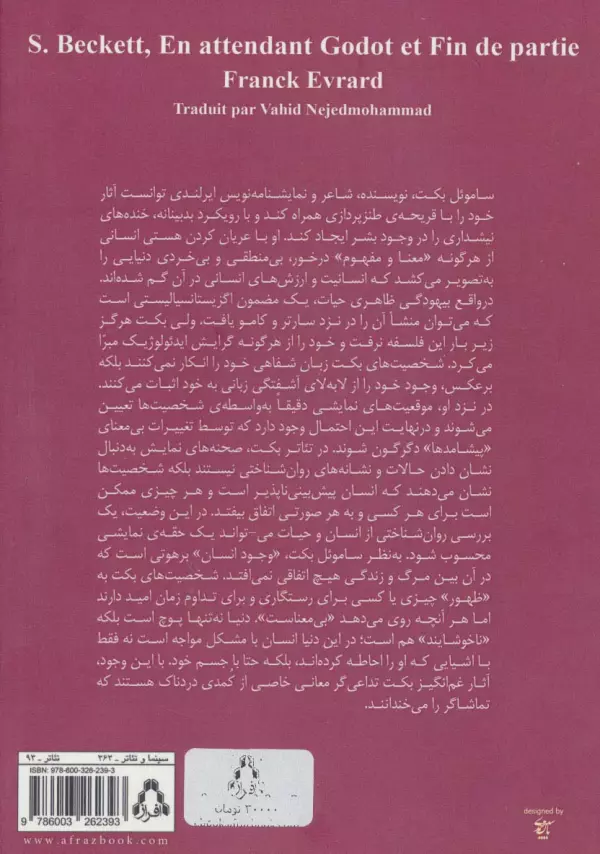 S. Beckett, En attendant Godot et Fin de partie
Franck Evrard
Traduit par Vahid Nejedmohammad
ساموئل بکت، نویسنده، شاعر و نمایشنامه‌نویس ایرلندی توانست آثار
خود را با قریحه‌ی طنزپردازی همراه کند و با رویکرد بدبینانه، خنده‌های
نیشداری را در وجود بشر ایجاد کند. او با عریان کردن هستی انسانی
از هرگونه «معنا و مفهوم» درخور، بی‌منطقی و بی‌خردی دنیایی را
به‌تصویر می‌کشد که انسانیت و ارزش‌های انسانی در آن گم شده‌اند.
درواقع بیهودگی ظاهری حیات، یک مضمون اگزیستانسیالیستی است
که می‌توان منشأ آن را در نزد سارتر و کامو یافت، ولی بکت هرگز
زیر بار این فلسفه نرفت و خود را از هرگونه گرایش ایدئولوژیک مبرّا
می‌کرد. شخصیت‌های بکت زبان شفاهی خود را انکار نمی‌کنند بلکه
برعکس، وجود خود را از لابه‌لای آشفتگی زبانی به خود اثبات می‌کنند.
در نزد او، موقعیت‌های نمایشی دقیقاً به‌واسطه‌ی شخصیت‌ها تعیین
می‌شوند و درنهایت این احتمال وجود دارد که توسط تغییرات بی‌معنای
«پیشامدها» دگرگون شوند. در تئاتر بکت، صحنه‌های نمایش به‌دنبال
نشان دادن حالات و نشانه‌های روان‌شناختی نیستند بلکه شخصیت‌ها
نشان می‌دهند که انسان پیش‌بینی‌ناپذیر است و هر چیزی ممکن
است برای هر کسی و به هر صورتی اتفاق بیفتد. در این وضعیت، یک
بررسی روان‌شناختی از انسان و حیات می-تواند یک حقه‌ی نمایشی
محسوب شود. به‌نظر ساموئل بکت، «وجود انسان» برهوتی است که
در آن بین مرگ و زندگی هیچ اتفاقی نمی‌افتد. شخصیت‌های بکت به
«ظهور» چیزی یا کسی برای رستگاری و برای تداوم زمان امید دارند
اما هر آنچه روی می‌دهد «بی‌معناست». دنیا نه‌تنها پوچ است بلکه
«ناخوشایند» هم است؛ در این دنیا انسان با مشکل مواجه است نه فقط
با اشیایی که او را احاطه کرده‌اند، بلکه حتا با جسم خود. با این وجود،
آثار غم‌انگیز بکت تداعی‌گر معانی خاصی از کمدی دردناک هستند که
تماشاگر را می‌خندانند.
سینما و تئاتر ـ ۲۶۳
تئاتر ـ ۹۳
ISBN: 978-600-326-239-3
9 786003 262393
www.afrazbook.com
افراز
۳۰۰۰۰ تومان
designed by